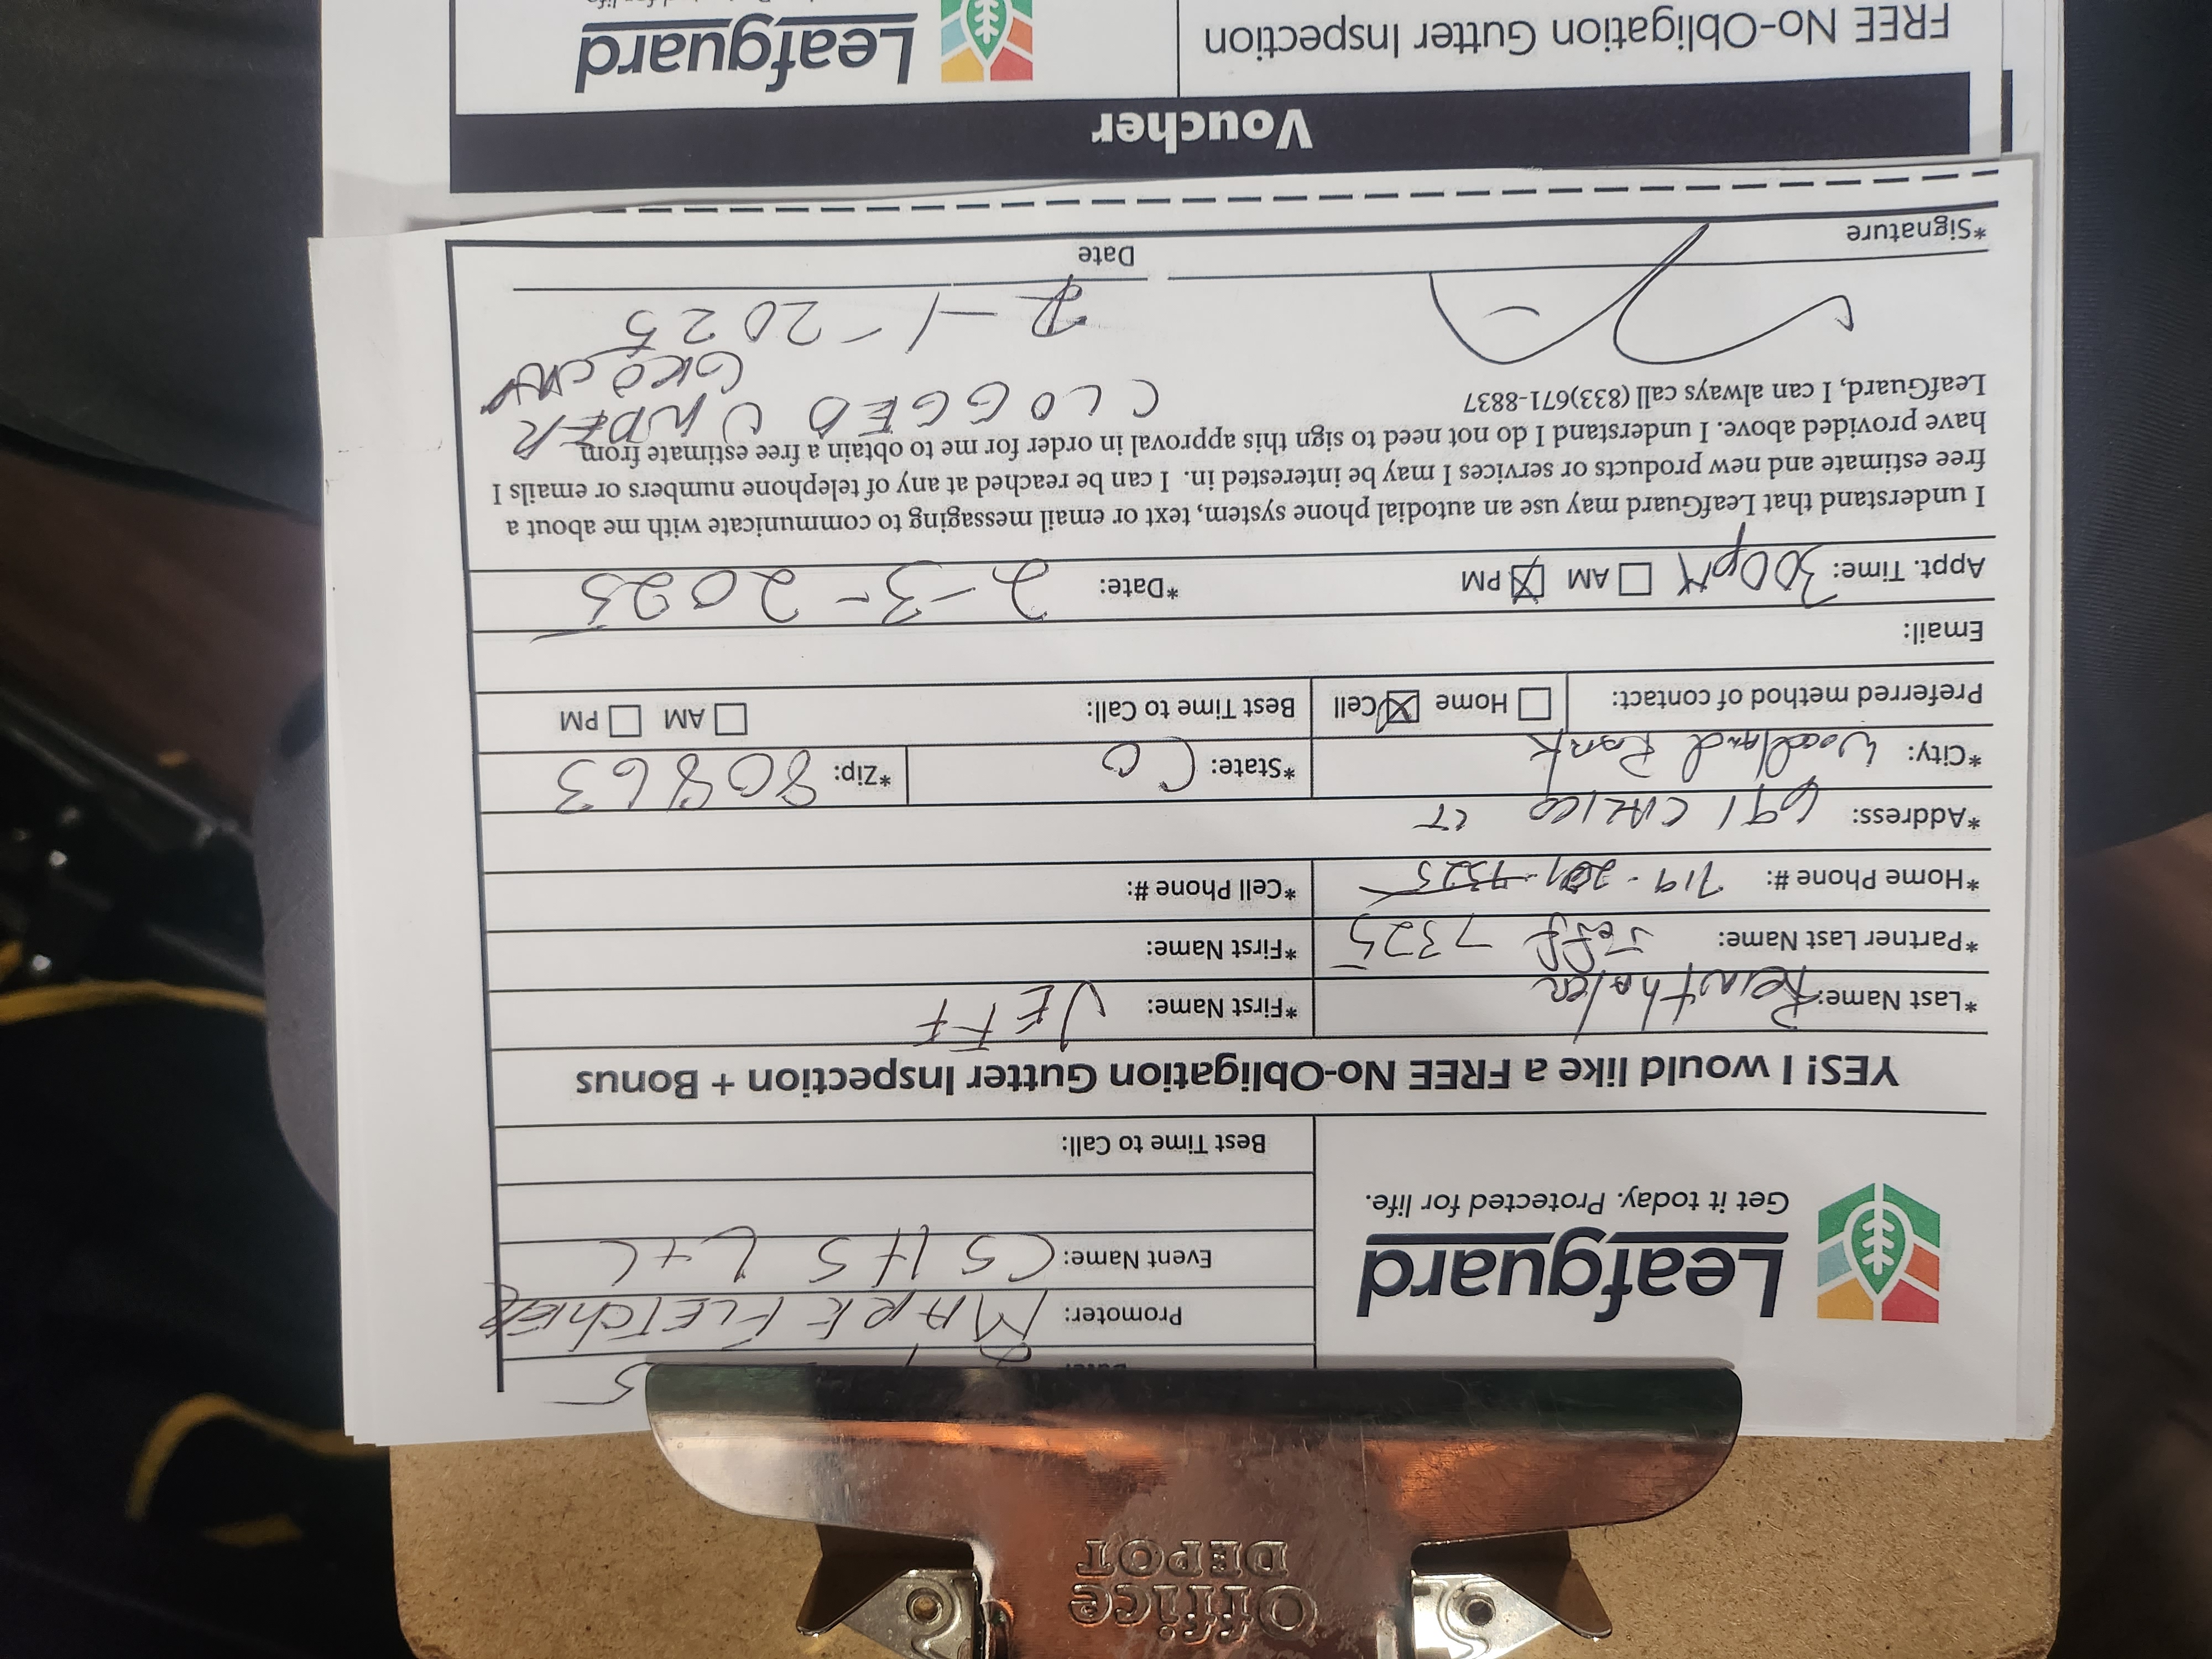 Office
DEPOT
Leafguard
Get it today. Protected for life.
5
Promoter: MARK FLETCHER
Event Name: CSHS L+L
Best Time to Call:
YES! I would like a FREE No-Obligation Gutter Inspection + Bonus
*Last Name: *First Name: JEFF
*Partner Last Name: Jeff 7325 *First Name:
*Home Phone #: 719 - *Cell Phone #:
*Address: 691 CALICO CT
*City: Woodland Park *State: CO *Zip: 80863
Preferred method of contact: Home Cell Best Time to Call: AM PM
Email:
Appt. Time: 300pM AM PM *Date: 2-3-2025
I understand that LeafGuard may use an autodial phone system, text or email messaging to communicate with me about a
free estimate and new products or services I may be interested in. I can be reached at any of telephone numbers or emails I
have provided above. I understand I do not need to sign this approval in order for me to obtain a free estimate from
LeafGuard, I can always call (833)671-8837
CLOGGED UNDER
GROUND
-1-2025
*Signature Date
Voucher
FREE No-Obligation Gutter Inspection
Leafguard